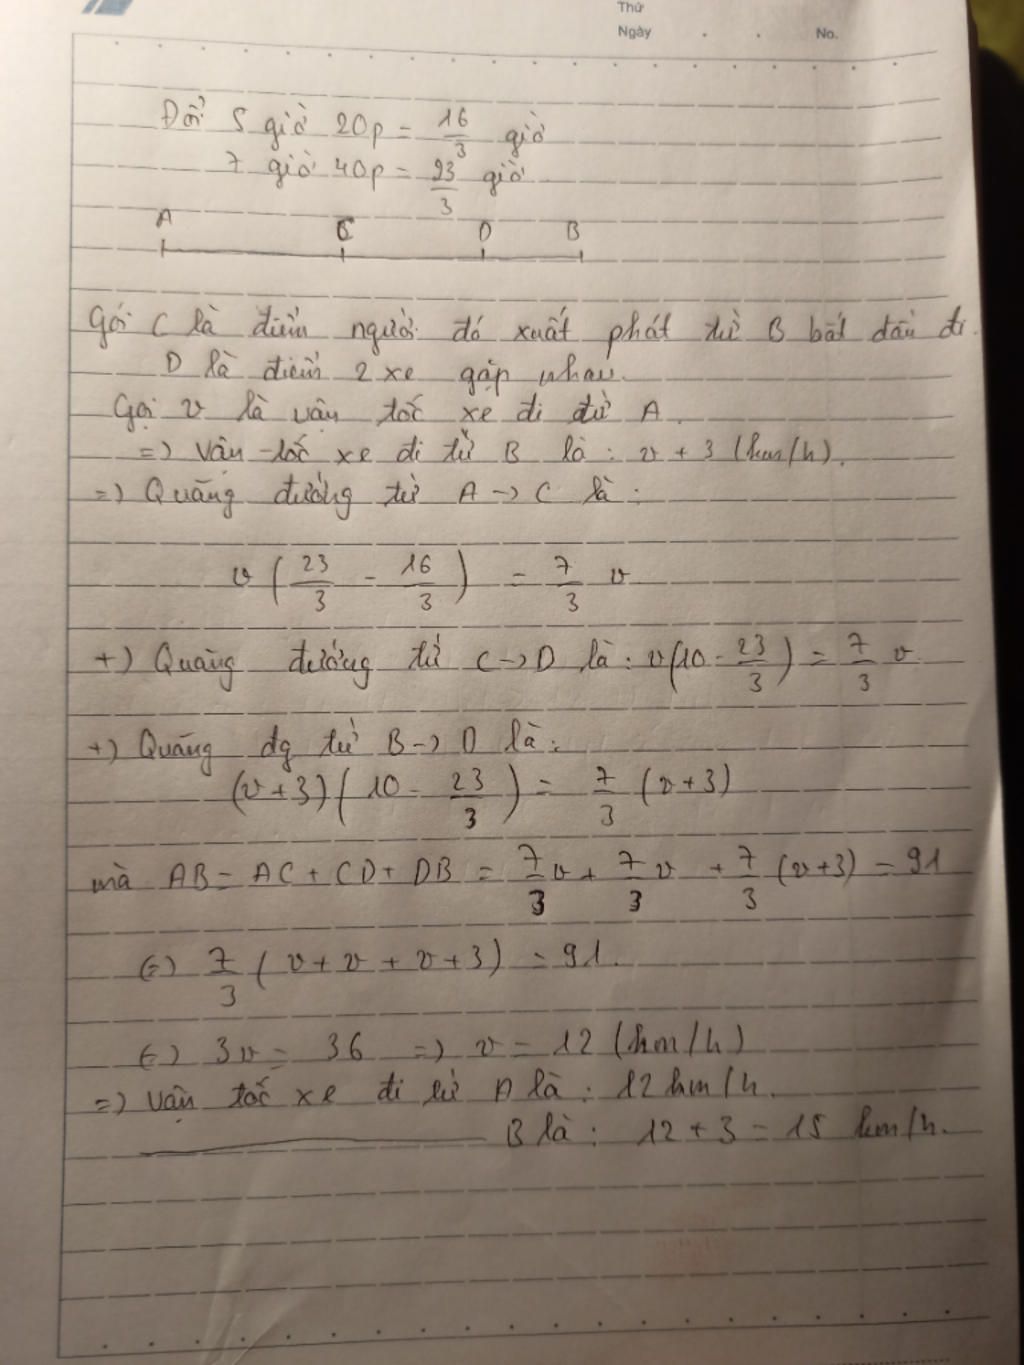 Thứ
Ngày . . No.
Đổi 5 giờ 20p = 16/3 giờ
7 giờ 40p = 23/3 giờ
A C D B
Gọi C là điểm người đó xuất phát từ B bắt đầu đi
D là điểm 2 xe gặp nhau.
Gọi v là vận tốc xe đi từ A.
=) Vận tốc xe đi từ B là : v + 3 (km/h).
=) Quãng đường từ A -> C là :
v ( 23/3 - 16/3 ) = 7/3 v
+) Quãng đường từ C -> D là : v(10 - 23/3) = 7/3 v.
+) Quãng đg từ B -> D là :
(v+3)( 10 - 23/3 ) = 7/3 (v+3)
mà AB = AC + CD + DB = 7/3 v + 7/3 v + 7/3 (v+3) = 91
(=) 7/3 ( v + v + v + 3) = 91.
(=) 3v = 36 =) v = 12 (km/h)
=) Vận tốc xe đi từ A là : 12 km/h.
B là : 12 + 3 = 15 km/h.